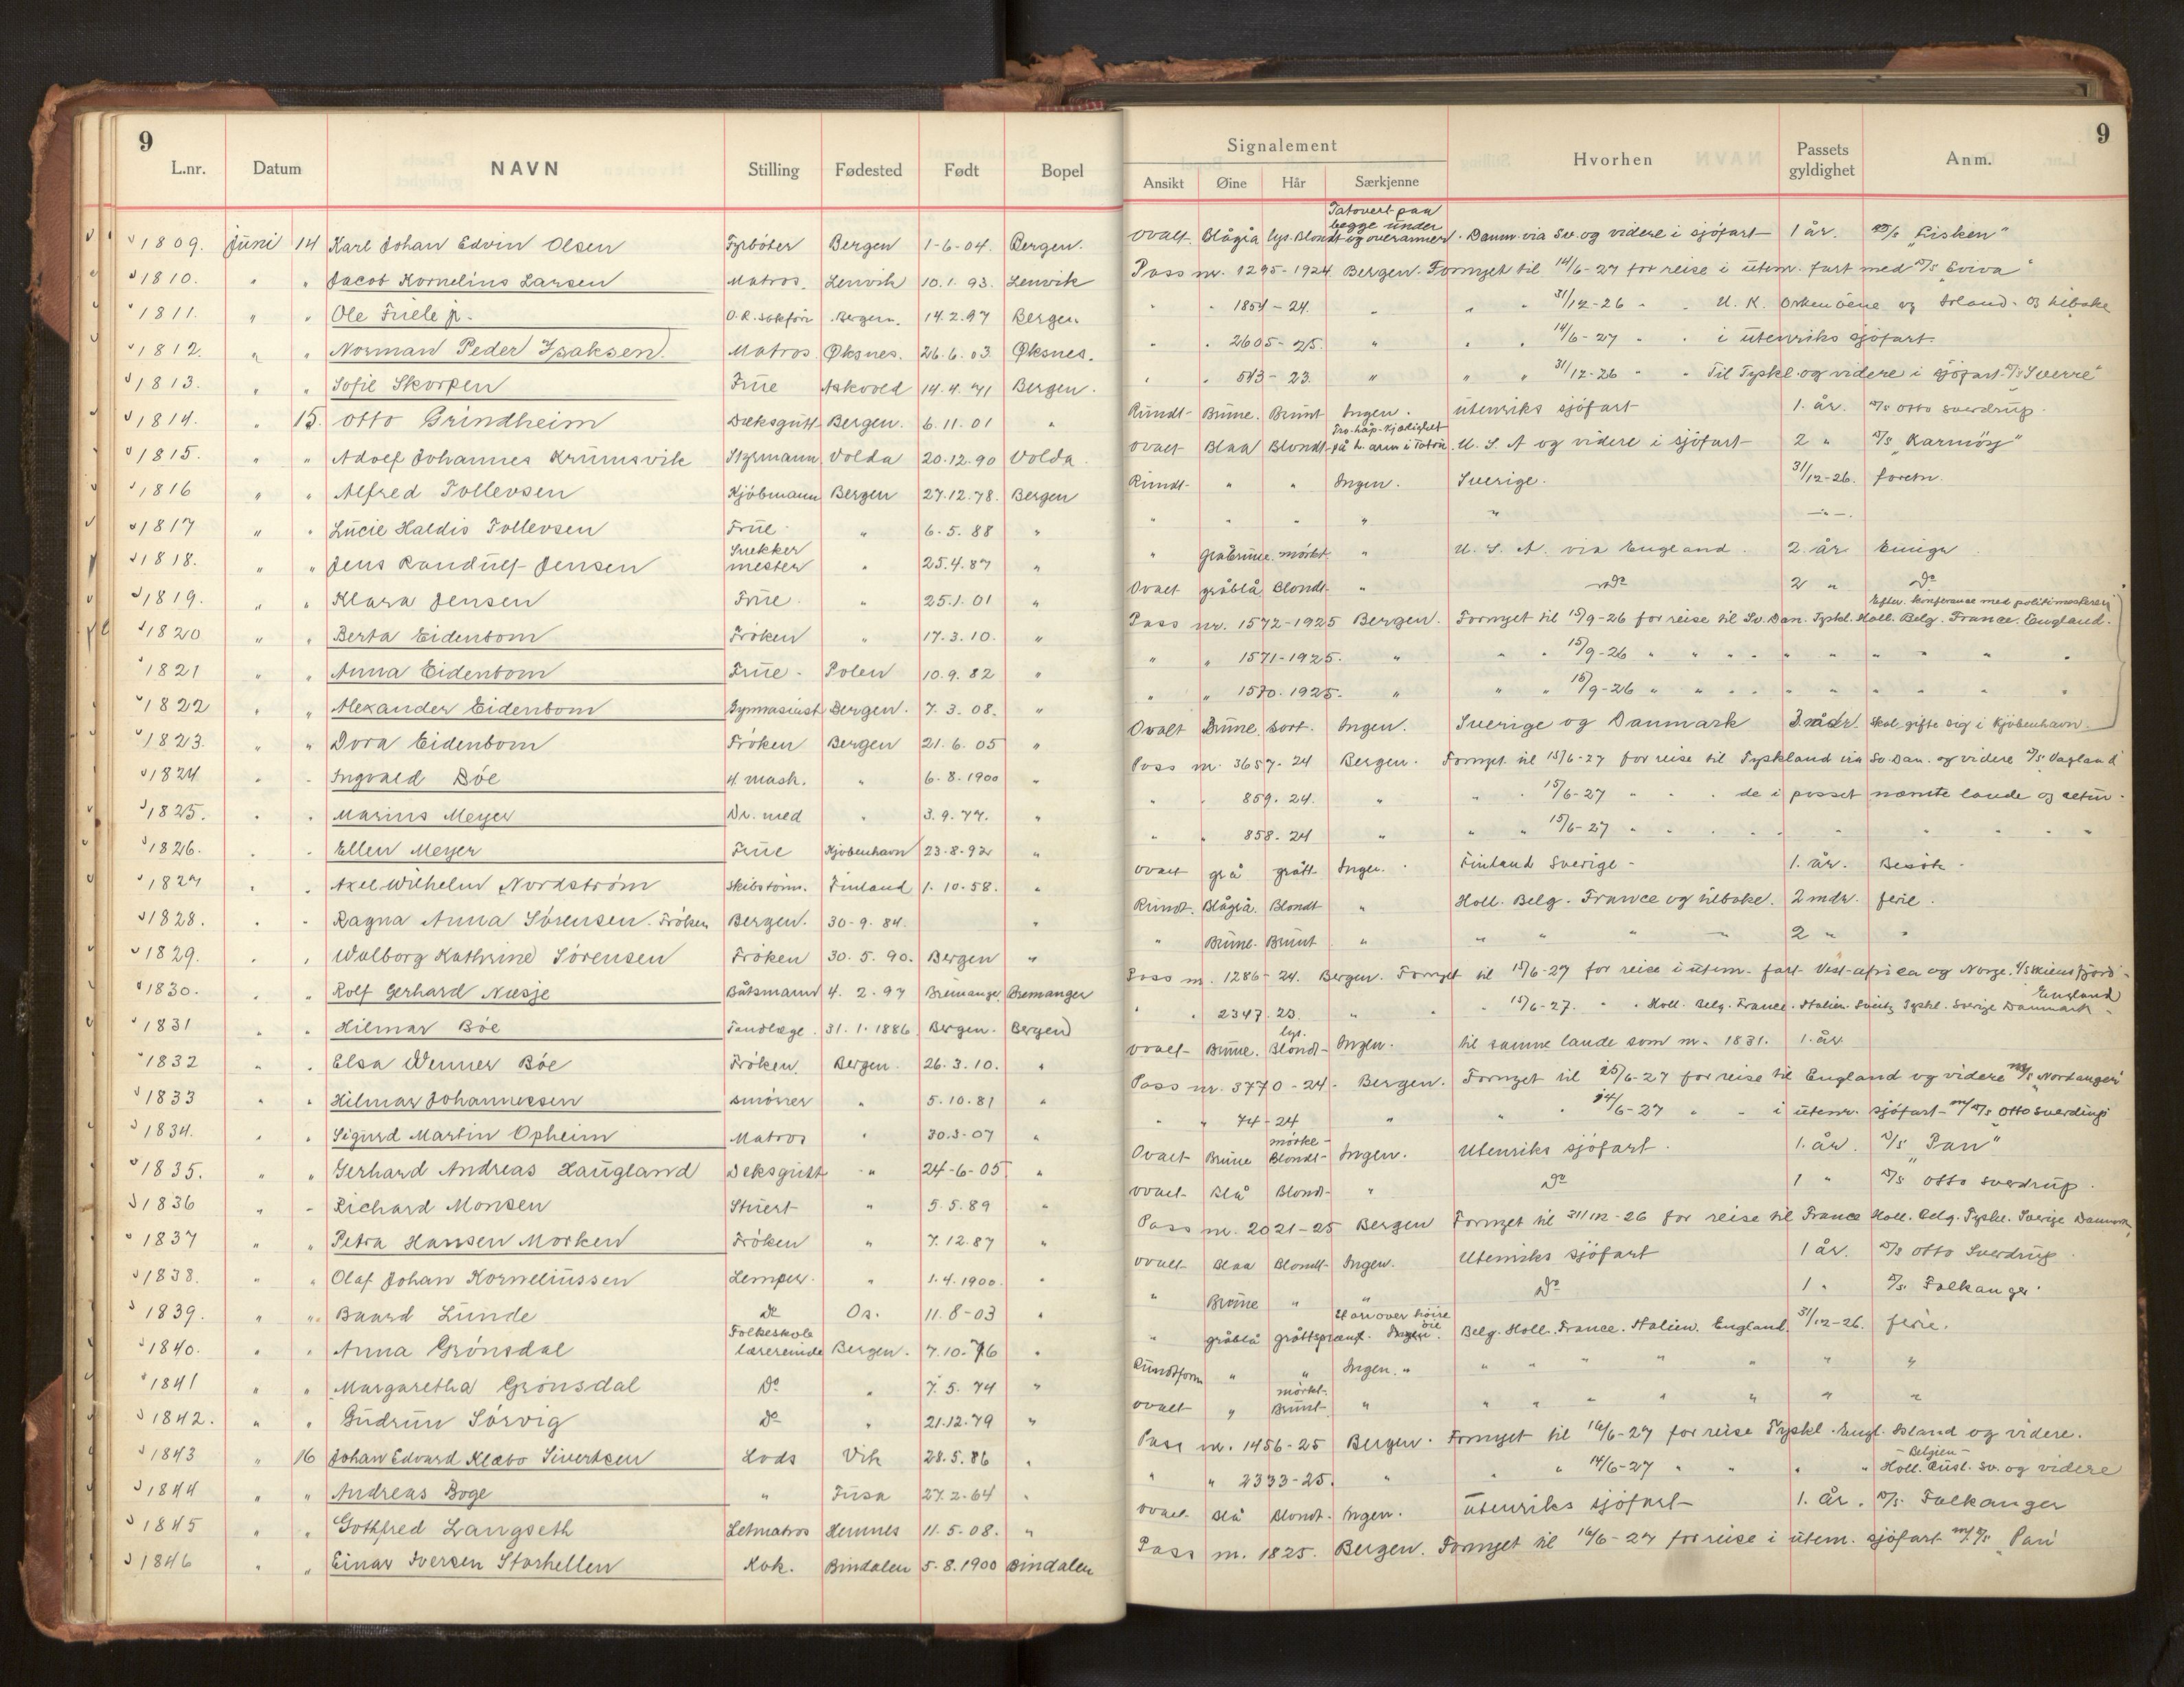 9
L.nr. Datum NAVN Stilling Fødested Født Bopel
1809. Juni 14 Karl Johan Edvin Olsen Fyrböter Bergen 1-6-04. Bergen.
1810. " " Jacob Kornelius Larsen Matros. Lenvik 10.1.93. Lenvik
1811. " " Ole Friele jr. O.R. sakförer Bergen. 14.2.97 Bergen
1812. " " Norman Peder Isaksen. Matros Øksnes. 26.6.03. Øksnes.
1813. " " Sofie Skorpen Früe Askvold 14.4.71 Bergen.
1814. " 15. Otto Grindheim Dæksgütt Bergen. 6.11.01 "
1815. " " Adolf Johannes Krümsvik Styrmann Volda 20.12.90 Volda
1816 " " Alfred Tollevsen Kjöbmann Bergen 27.12.78. Bergen
1817 " " Lücie Haldis Tollevsen Früe " 6.5.88 "
1818. " " Jens Randülf Jensen Snekker mester " 25.4.87 "
1819. " " Klara Jensen Früe " 25.1.01 "
1820 " " Berta Eidenbom Fröken " 17.3.10. "
1821 " " Anna Eidenbom Früe - Polen 10.9.82 "
1822 " " Alexander Eidenbom Gymnasiast Bergen. 7.3.08. "
1823. " " Dora Eidenbom Fröken Bergen 21.6.05 "
1824 " " Ingvald Böe 4 mask. " 6-8-1900 "
1825. " " Marius Meyer Dr. med " 3.9.77. "
1826. " " Ellen Meyer Früe Kjøbenhavn 23-8-92 "
1827 " " Axel Wilhelm Nordström Skibstöm. Finland 1.10-58. "
1828. " " Ragna Anna Sörensen. Fröken Bergen. 30-9.84. "
1829. " " Walborg Kathrine Sörensen Fröken 30.5.90. Bergen "
1830. " " Rolf Gerhard Næsje Båtsmand 4.2.97 Bremanger. Bremanger
1831 " " Hilmar Böe Tandlæge. 31.1.1886. Bergen. Bergen
1832 " " Elsa Wenner Böe Fröken. Bergen. 26.3.10. "
1833 " " Hilmar Johannessen Smörrer " 5.10.81 "
1834. " " Sigurd Martin Opheim Matros " 30.3-07 "
1835. " " Gerhard Andreas Haügland Deksgütt " 24-6-05 "
1836 " " Richard Monsen Stüert " 5.5.89 "
1837 " " Petra Hansen Morken Fröken " 7.12.87 "
1838. " " Olaf Johan Korneliüssen Lemper. " 1.4.1900. "
1839. " " Baard Lünde Do Os. 11.8-03 "
1840. " " Anna Grönsdal Folkeskole lærerinde Bergen. 7.10-76 "
1841 " " Margaretha Grönsdal Do " 7.5.74 "
1842. " " Güdrün Sörvig Do " 21.12.79 "
1843 " 16 Johan Edvard Klæbo Sivertsen Lods Vik 28.5.86 "
1844 " " Andreas Boge " Füsa 27.2-64 "
1845 " " Gothfred Langseth Letmatros Hemnes 11.5-08. "
1846 " " Einar Iversen Storhellen Kok. Bindalen 5.8.1900 Bindalen
9
Signalement Hvorhen Passets gyldighet Anm.
Ansikt Øine Hår Særkjenne
Ovalt Blågrå lys. Blondt Tatovert paa begge under og overarmer. Danm. via Sv. og videre i sjöfart 1 år. D/S "Fisken"
Pass nr. 1295-1924 Bergen. Fornyet til 14/6-27 for reise i utenr. fart med D/S Eviva"
" " 1854-24. " " " 31/12-26 " " U.K. Orkenöene og Irland. og tilbake
" " 2605-25. " " " 14/6-27 " " i ütenriks sjöfart.
" " 543-23. " " " 31/12-26 " " Til Tyskl. og videre i sjöfart D/S Sverre"
Ründt Brüne. Brünt Ingen. ütenriks sjöfart 1. år. D/S Otto Sverdrup.
Ovalt Blaa Blondt Tro-håp-kjærlighet på h. arm i Tatov. U.S.A og videre i sjöfart 2 " D/S "Karmöy"
Ründt " " Ingen. Sverige. 31/12-26. foretn.
" " " " " -"-.
" gråbrüne. mörkt " U.S.A. via England. 2 år Emigr
Ovalt gråblå Blondt " Do 2 " Do
Efter konferanse med politimesteren
Pass nr. 1572-1925 Bergen. Fornyet til 15/9-26 for reise til Sv. Dan. Tyskl. Holl. Belg. France. England.
" " 1571-1925. " " " 15/9-26 " " " " " " " "
" " 1570.1925. " " " 15/9-26 " " " " " " " "
Ovalt Brüne. Sort. Ingen. Sverige og Danmark 3 mdr. Skal gifte sig i Kjöbenhavn.
Pass nr. 3657-24 Bergen. Fornyet til 15/6-27 for reise til Tyskland via Sv. Dan. og videre D/S Vagland"
" " 859.24. " " " 15/6-27 " " de i passet nævnte lande og retür.
" " 858.24 " " " 15/6-27 " " " " " " "
Ovalt grå grått Ingen. Finland Sverige - 1. år. Besök.
Ründt. Blågrå. Blondt " Holl. Belg. France og tilbake. 2 mdr. ferie.
" Brüne. Brünt " " " " " 2 " "
Pass nr. 1286-24. Bergen. Fornyet til 15/6-27 for reise i ütenr. fart Vest-africa og Norge. D/S Kiensfjord"
" " 2347.23. " " " 15/6-27. " " Holl. Belg. France. Italien. Sveitz Tyskl. Sverige Danmark England
Ovalt Brüne. lys. Blondt Ingen. til samme lande som nr. 1831. 1. år.
Pass nr. 3770-24 - Bergen. Fornyet til 25/6-27 for reise til England og videre m/S "Nordanger"
" " 74-24 " " " 14/6-27 " " i ütenr. sjöfart m/ D/S Otto Sverdrup
Ovalt Brüne mörke-Blondt Ingen. Utenriks sjöfart. 1. år. D/S "Pan"
Ovalt Blå Blondt " Do 1 " D/S Otto Sverdrüp.
Pass nr. 2021-25 Bergen Fornyet til 31/12-26 for reise til France Holl. Belg. Tyskl. Sverige Danmark
Ovalt Blaa Blondt Ingen. Utenriks sjöfart 1 år. D/S Otto Sverdrüp.
" Brüne " " Do 1 " D/S Falkanger
" gråblå gråttsprengt Et arr over höire öie Belg. Holl. France. Italien. England. 31/12-26. ferie.
Ründform " " Ingen. " " " " " " "
Ovalt " mörket. Brünt " " " " " " " "
Pass nr. 1456-25 Bergen. Fornyet til 16/6-27 for reise Tyskl. Engl. Island og videre.
" " 2333-25. " " " 14/6-27 " " " Holl. - Belgien - Rusl. Sv. og videre
Ovalt Blå Blondt. Ingen. Utenriks sjöfart 1. år. D/S. Falkanger
Pass nr. 1825. Bergen. Fornyet til 16/6-27 for reise i ütenr. sjöfart m/ D/S "Pan"